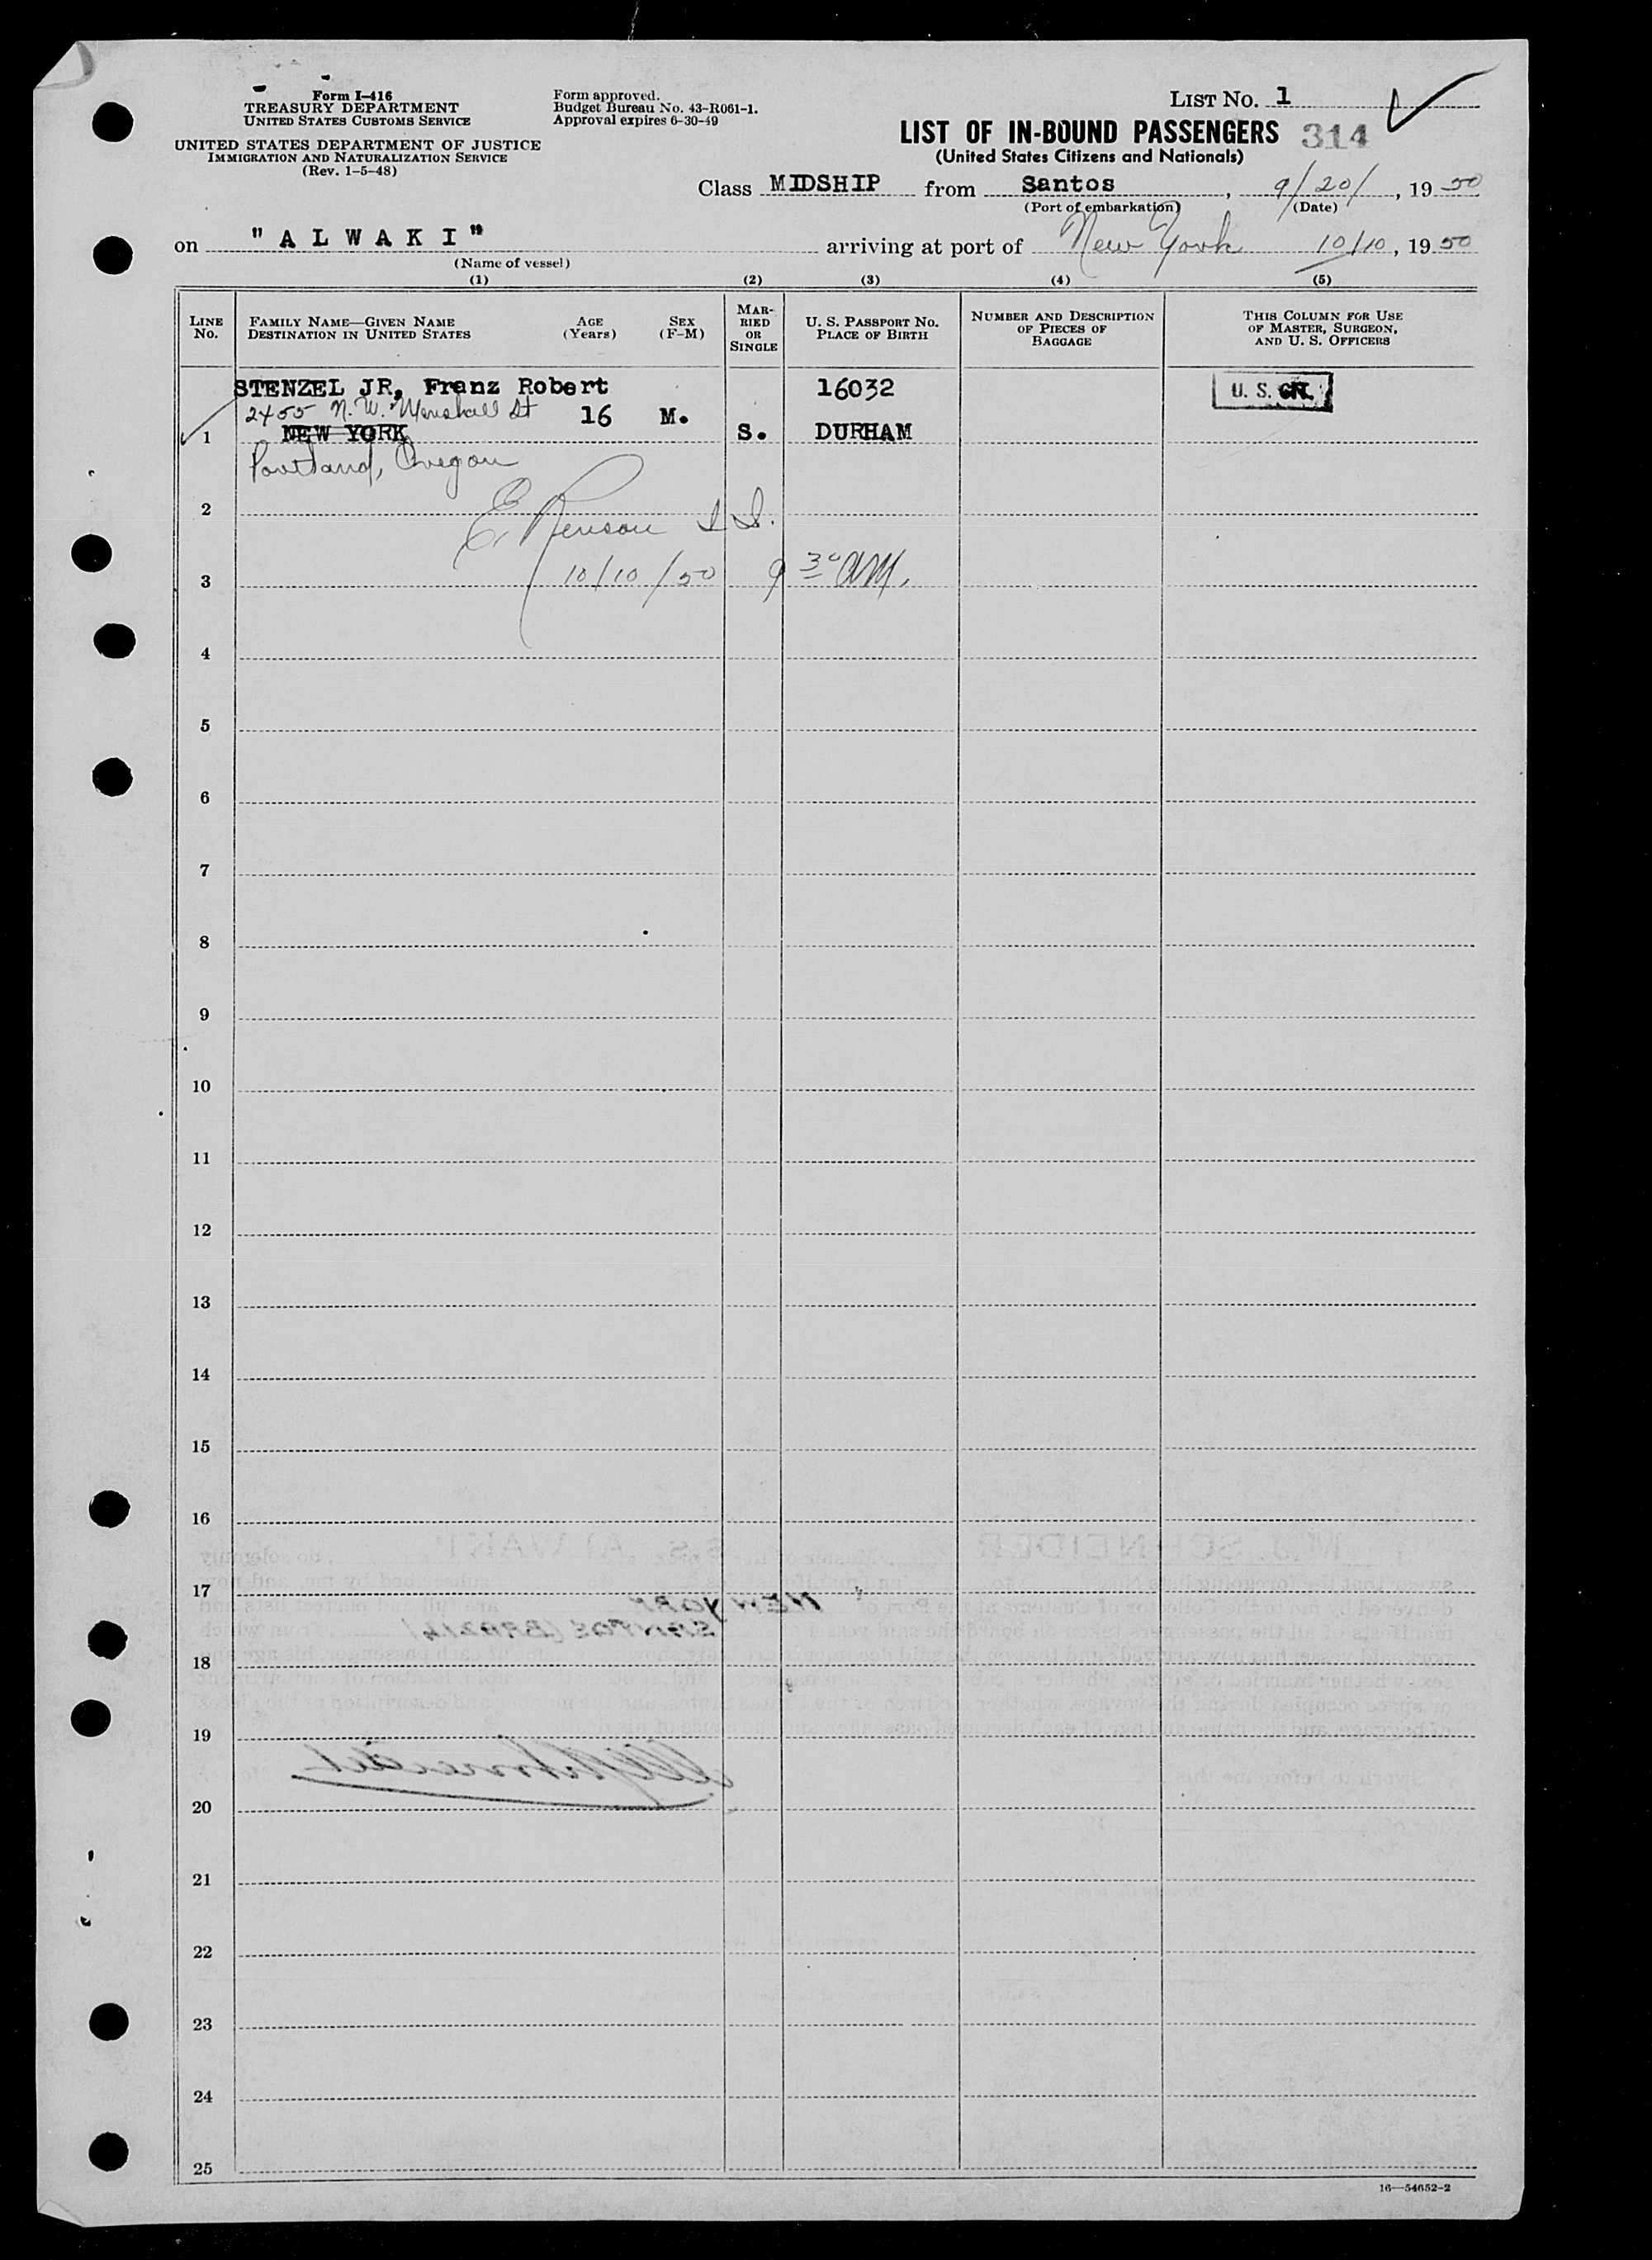 Form I-416
TREASURY DEPARTMENT
UNITED STATES CUSTOMS SERVICE
UNITED STATES DEPARTMENT OF JUSTICE
IMMIGRATION AND NATURALIZATION SERVICE
(Rev. 1-5-48)
Form approved.
Budget Bureau No. 43-R061-1.
Approval expires 6-30-49
LIST No. 1
LIST OF IN-BOUND PASSENGERS 314
(United States Citizens and Nationals)
Class MIDSHIP from Santos, 9/20/, 1950
(Port of embarkation) (Date)
on "ALWAKI" arriving at port of New York 10/10, 1950
(Name of vessel)
(1) (2) (3) (4) (5)
LINE No.
FAMILY NAME—GIVEN NAME
DESTINATION IN UNITED STATES
AGE (Years)
SEX (F-M)
MARRIED OR SINGLE
U. S. PASSPORT NO.
PLACE OF BIRTH
NUMBER AND DESCRIPTION OF PIECES OF BAGGAGE
THIS COLUMN FOR USE OF MASTER, SURGEON, AND U. S. OFFICERS
STENZEL JR, Franz Robert 16032 U. S. CIT.
2455 N.W. Marshall St 16 M.
1 NEW YORK S. DURHAM
Portland, Oregon
2 E.
3 10/10/50 9 30 AM.
4
5
6
7
8
9
10
11
12
13
14
15
16
17
18
19
20
21
22
23
24
25
16—54652-2